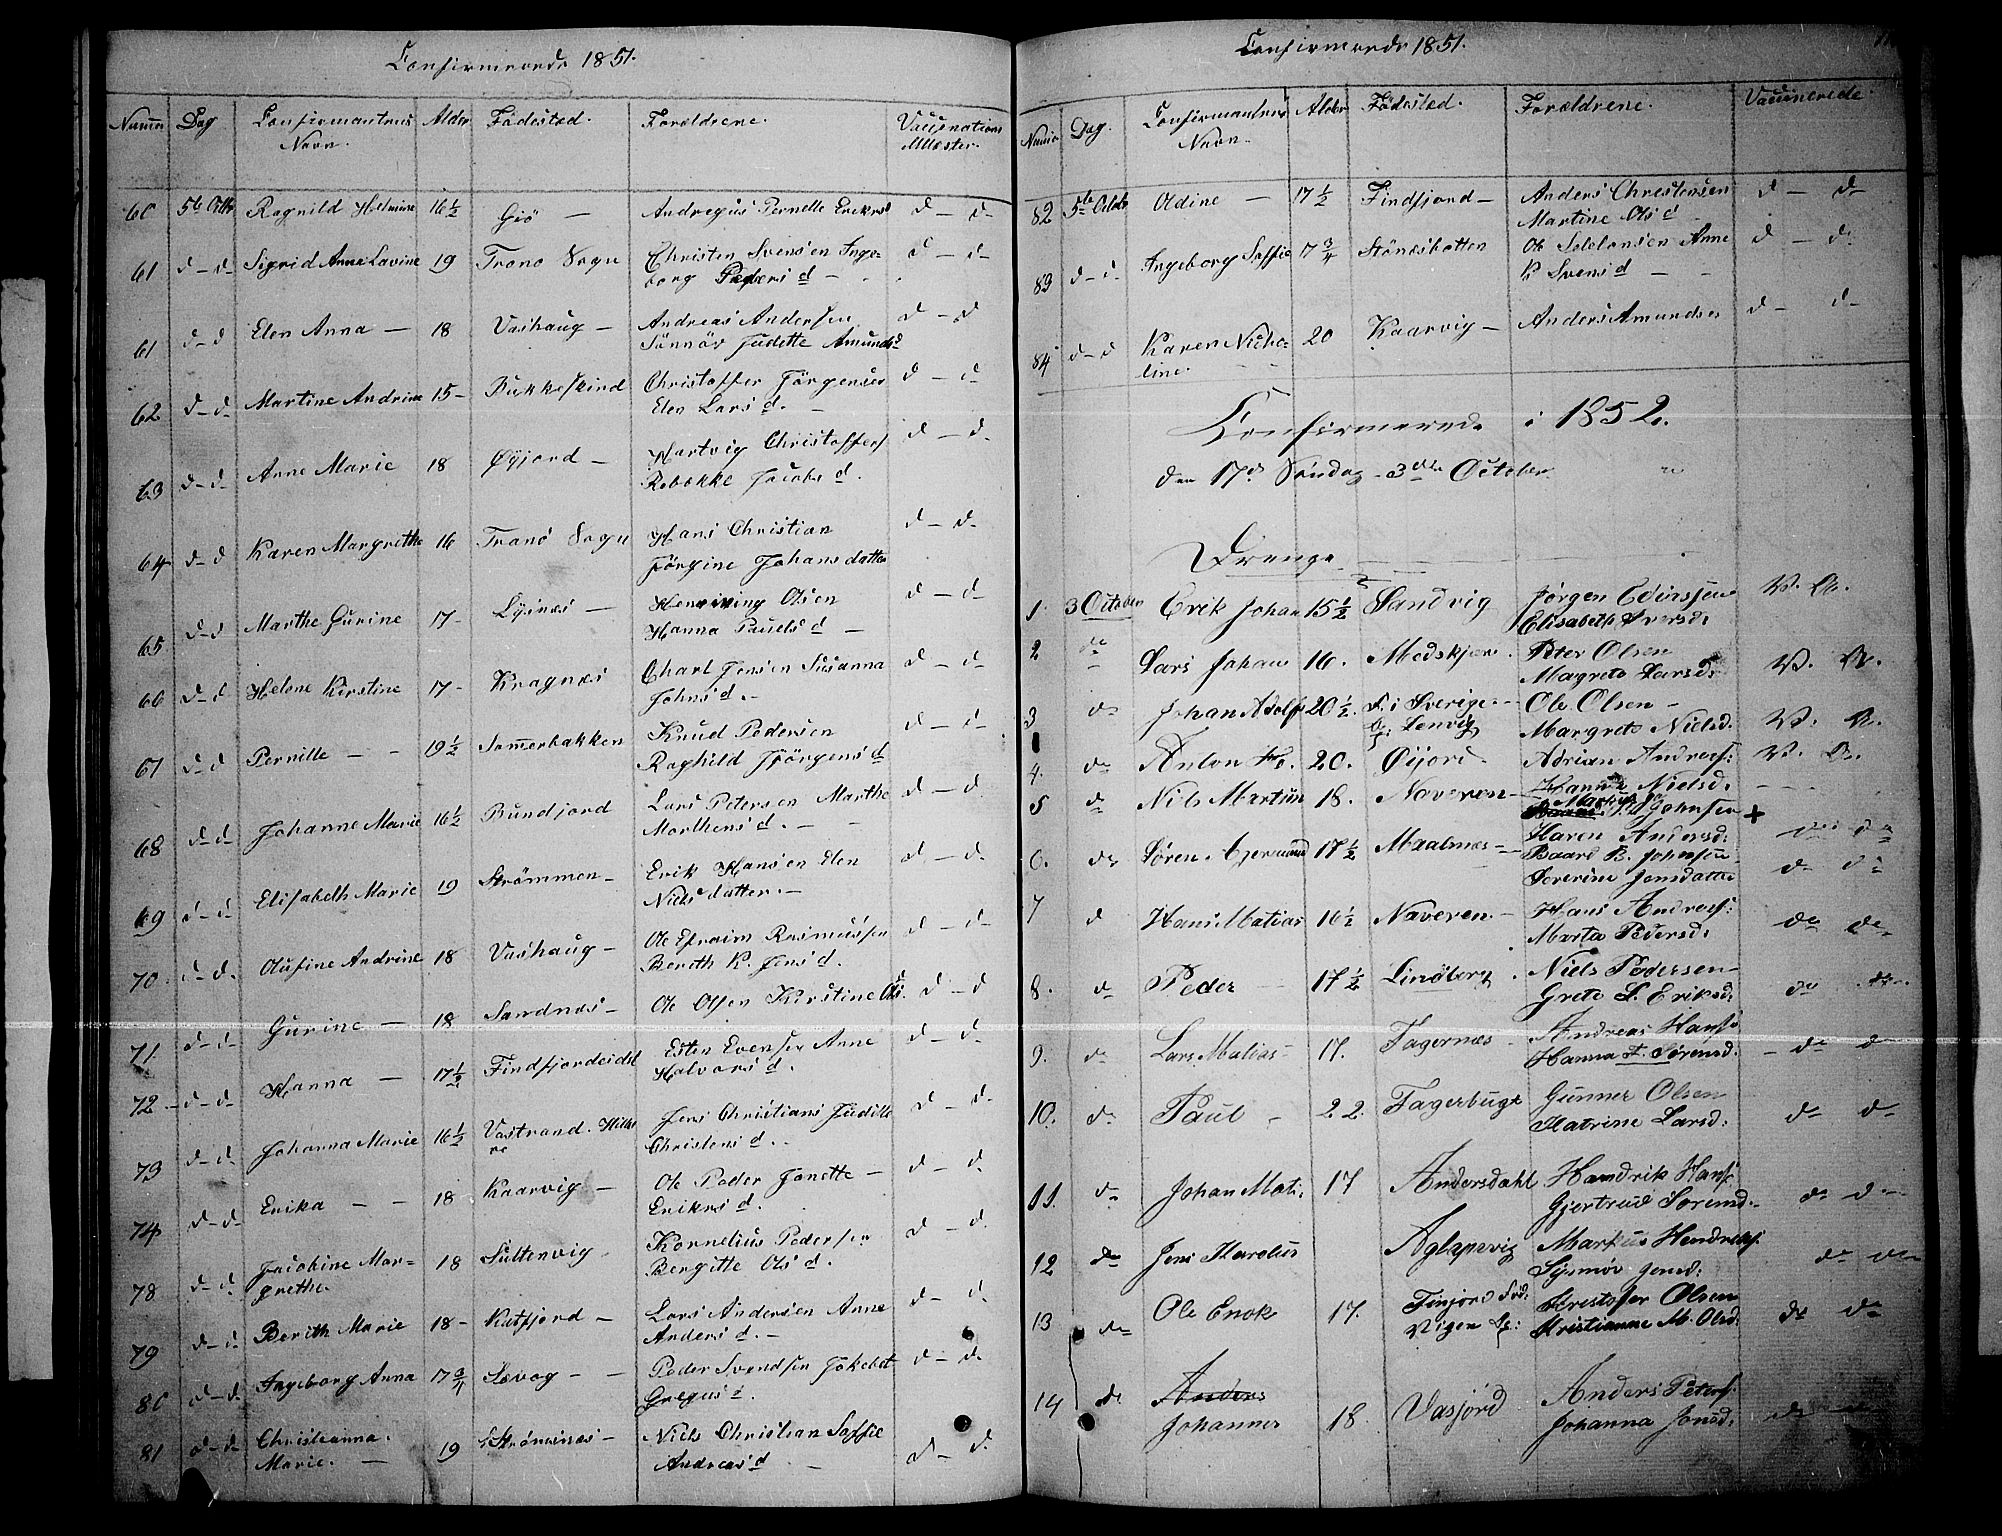 Confirmerede 1851.
Numer Dag Confirmantens Navn. Alder Födested. Forældrene. Vaccinations
60 5te Octbr Ragnild Helmine 16½ Giö — Andreas Pernelle Eriksd d — d
61 d — d Sigrid Anna Lavine 19 Tranö Sogn Christen Svensen Inge-
borg Peders d —
61 d — d Elen Anna — 18 Vashaug — Andreas Andersen
Sönnöv Judette Amundsd d — d
62 d — d Martine Andrine 15 — Bukkeskind Christoffer Jörgensen
Elen Lars d. — d — d
63 d — d Anne Marie 18 Øyjord — Hartvig Christoffers
Rebekke Jacobs d. d — d.
64 d — d Karen Margrethe 16 Tranö Sogn Hans Christian
Jörgine Johans datter d — d.
65 d — d Marthe Gurine 17 — Lysnes — Henning Olsen
Hanna Pauels d — d — d
66 d — d Helene Kirstine 17 — Kragnæs Charl Jensen Susanna
Johns d. — d — d
67 d — d Pernille — — 19½ Sommerbakken Knud Pedersen
Raghild Jörgens d d — d
68 d — d. Johanne Marie 16½ Bundjord Lars Petersen Marthe
Morthens d. — d — d
69 d — d. Elisabeth Marie 19 Strömmen — Erik Hansen Elen
Niels datter. — d — d.
70 d — d. Olufine Andrine 18 Vashaug — Ole Efraim Rasmussen
Berith K. Jens d. d — d
71. d — d. Gurine — 18 Sandnæs — Ole Olsen Kirstine Ols d. d — d
72 — d — d Hanna — 17½ Findfjordeidet Esten Evensen Anne
Halvors d. d — d
73 d — d. Johanna Marie 16½ Vastrand. Jens Christians Judithe
Christens d. d — d
74 d — d. Erika — — 18 Kaarvig — Ole Peder Janette —
Eriks d. d — d.
78 d — d. Jacobine Mar-
grethe. 18 Sultenvig Kornelius Pedersen
Bergitte Ols d. d — d.
79 d — d. Berith Marie 18 — Katfjord — Lars Andersen Anne
Anders d. — d — d.
80 d — d. Ingeborg Anna 17¾ Sevog — — Peder Svendsen Jokebet
Gregus d. d — d.
81 d — d. Christianna
Marie. — 19 Strömsnes — Niels Christian Soffie
Andreas d — d — d.
Confirmerede 1851.
Numer Dag. Confirmantens Navn. Alder Födested. Forældrene. Vaccinerede.
82 5te Octbr Oldine — 17½ Findfjord — Anders Christensen
Martine Ols d d — d
83 d — d. Ingeborg Soffie 17¾ Stönesbotten Ole Anne
K Svens d — — d — d.
84 d — d Karen Nicho-
line. 20 Kaarvig — Anders Amundsen d — d —
Confirmerede i 1852.
den 17de Söndag — 3die October.
Drenge.
1. 3 October Erik Johan 15½ Sandvig Jørgen Edinsjen
Elisabeth Iversd: V. A.
2 do Lars Johan 16. Medskjær Peter Olsen
Margrete Larsd: V. A.
3 do Johan Adolf 20½. F. i Sverige
Lenvig Ole Olsen —
Margrete Nielsd. V. A.
4. do Anton 20. Øijord. Adrian Andreas:
Hanna Nielsd. V. A.
5 do Nils Martin 18. Naveren — Johnsen +
Karen Andersd:
6. do Søren 17½ Maalnæs — Baard B. Johnsen
Severine Jensdatter d. d.
7 d Hans Matias 16½ Naveren. — Hans Andreas:
Marta Pedersd: do do
8. do Peder — 17½ Lindberg Niels Pedersen —
Grete S. Eriksd: do
9. do Lars Matias 17. Fagernæs — Andreas Hans:
Hanna Sørensd. — do do
10. do Paul — 22. Fagerbugt Gunner Olsen
Katrine Larsd: do do
11. do Johan Mati: 17 Andersdahl Hendrik Hans:
Gjertrud Sørensd. do do
12 do Jens Karolus Aglapevig Markus Hendriks:
Synnöv Jensd: do do
13 do Ole Enok 17. Finjord Föd:
Vigen Kristofer Olsen
Kristianne M. Olsd: do do
14 do Anders
Johannes 18. Vasjord Anders Peters:
Johanna Jonsd: do do